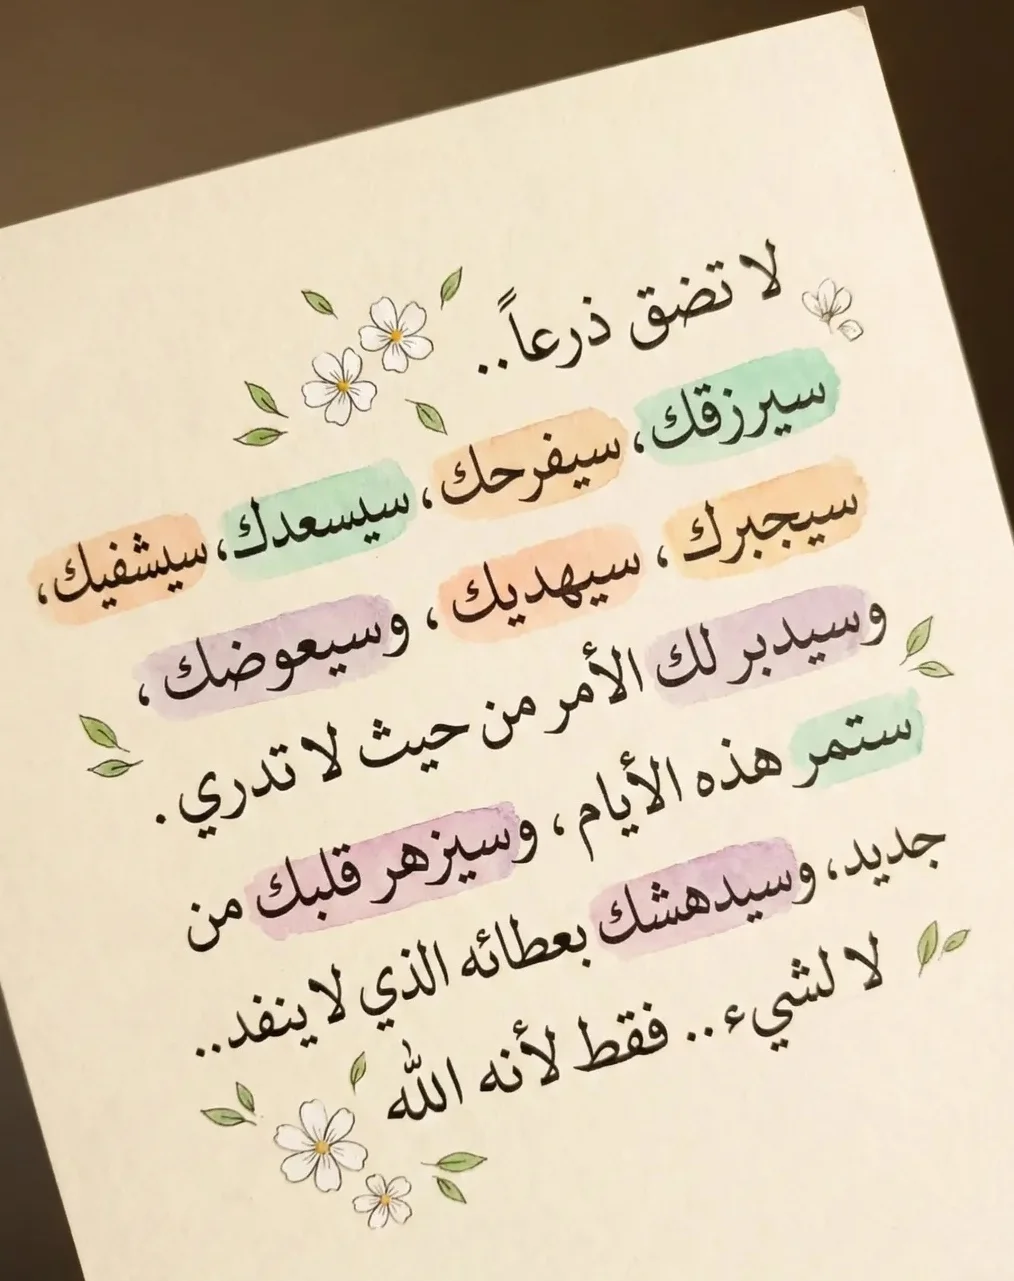 لا تضق ذرعاً..
سيرزقك، سيفرحك، سيسعدك، سيشفيك،
سيجبرك ، سيهديك ، وسيعوضك ،
وسيدبر لك الأمر من حيث لا تدري .
ستمر هذه الأيام ، وسيزهر قلبك من
جديد، وسيدهشك بعطائه الذي لا ينفد..
لا لشيء.. فقط لأنه الله